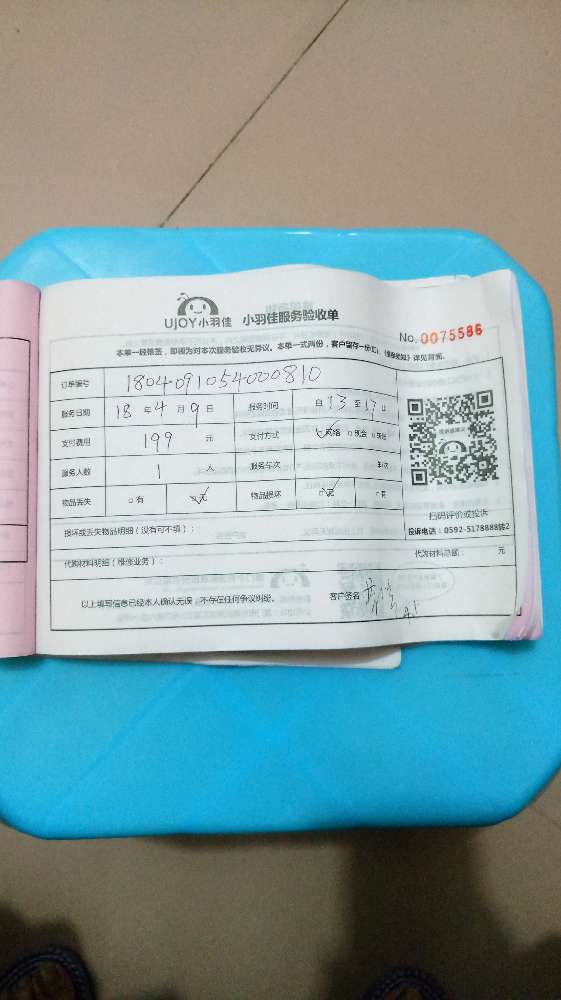 UJOY小羽佳 小羽佳服务验收单
No. 0075586
本单一经签签，即视为对本次服务验收无异议。本单一式两份，客户留存一份(红)，《服务须知》详见背面。
订单编号 1804091054000810
服务日期 18 年 4 月 9 日 服务时间 自 13 至 17 止
支付费用 199 元 支付方式 网络 □现金
服务人数 1 人 服务车次 车次
物品丢失 □有 无 物品损坏 无 □有
扫码评价或投诉
投诉电话：0592-5178888转2
损坏或丢失物品明细（没有可不填）：
代购材料明细（维修业务）： 代购材料总额： 元
以上填写信息已经本人确认无误，不存在任何争议纠纷。 客户签名：